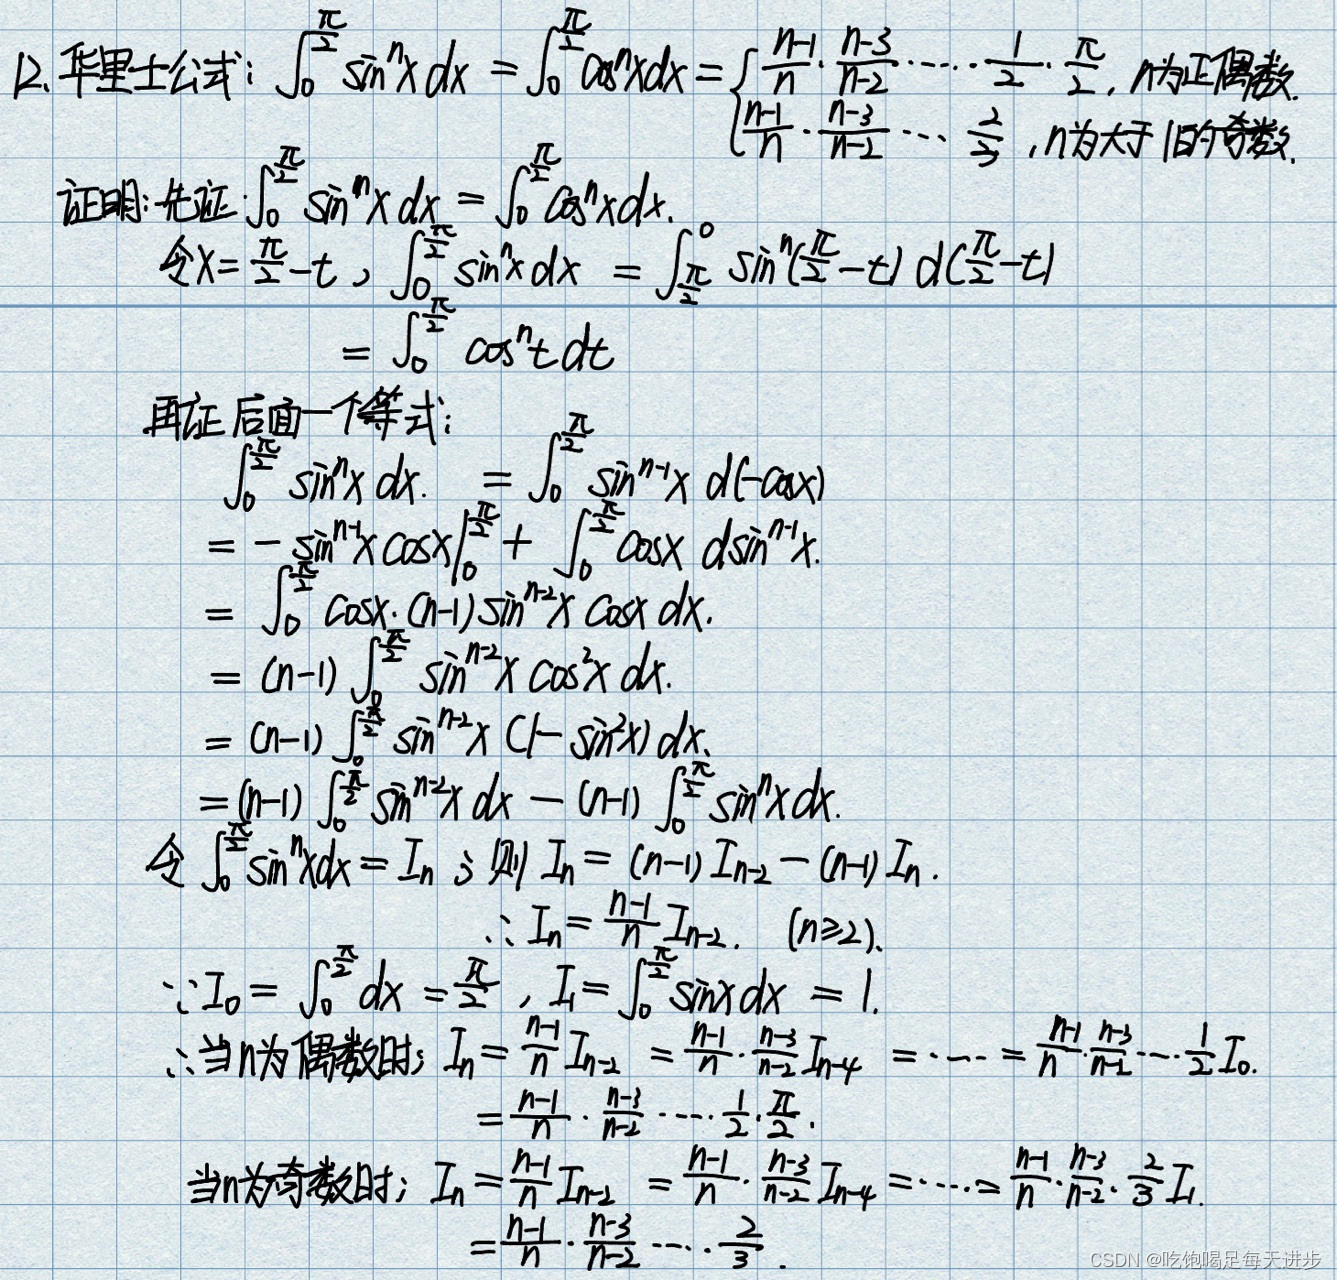 12. 华里士公式: ∫₀^{π/2} sinⁿx dx = ∫₀^{π/2} cosⁿx dx = { (n-1)/n · (n-3)/(n-2) ····· 1/2 · π/2, n为正偶数.
(n-1)/n · (n-3)/(n-2) ··· 2/3, n为大于1的奇数.
证明: 先证: ∫₀^{π/2} sinⁿx dx = ∫₀^{π/2} cosⁿx dx.
令x = π/2 - t, ∫₀^{π/2} sinⁿx dx = ∫_{π/2}^0 sinⁿ(π/2 - t) d(π/2 - t)
= ∫₀^{π/2} cosⁿt dt
再证后面一个等式:
∫₀^{π/2} sinⁿx dx. = ∫₀^{π/2} sin^{n-1}x d(-cosx)
= - sin^{n-1}x cosx |₀^{π/2} + ∫₀^{π/2} cosx dsin^{n-1}x.
= ∫₀^{π/2} cosx·(n-1) sin^{n-2}x cosx dx.
= (n-1) ∫₀^{π/2} sin^{n-2}x cos²x dx.
= (n-1) ∫₀^{π/2} sin^{n-2}x (1 - sin²x) dx.
= (n-1) ∫₀^{π/2} sin^{n-2}x dx - (n-1) ∫₀^{π/2} sinⁿx dx.
令 ∫₀^{π/2} sinⁿx dx = Iₙ; 则 Iₙ = (n-1) I_{n-2} - (n-1) Iₙ.
∴ Iₙ = (n-1)/n I_{n-2}. (n≥2).
∵ I₀ = ∫₀^{π/2} dx = π/2, I₁ = ∫₀^{π/2} sinx dx = 1.
∴ 当n为偶数时; Iₙ = (n-1)/n I_{n-2} = (n-1)/n · (n-3)/(n-2) I_{n-4} = ···· = (n-1)/n · (n-3)/(n-2) ···· 1/2 I₀.
= (n-1)/n · (n-3)/(n-2) ···· 1/2 · π/2.
当n为奇数时; Iₙ = (n-1)/n I_{n-2} = (n-1)/n · (n-3)/(n-2) I_{n-4} = ····· = (n-1)/n · (n-3)/(n-2) · 2/3 I₁.
= (n-1)/n · (n-3)/(n-2) ····· 2/3.
CSDN @吃饱喝足每天进步